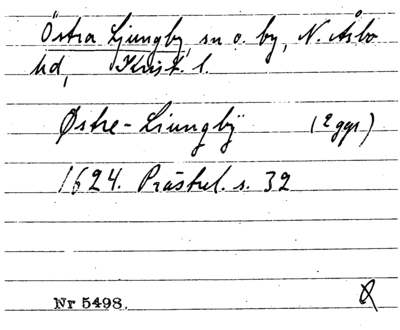 Östra Ljungby, sn o. by, N. Åsbo
hd, Krist. l.
Østre-Liungbÿ (2 ggr)
1624. Prästrel. s. 32
Nr 5498.